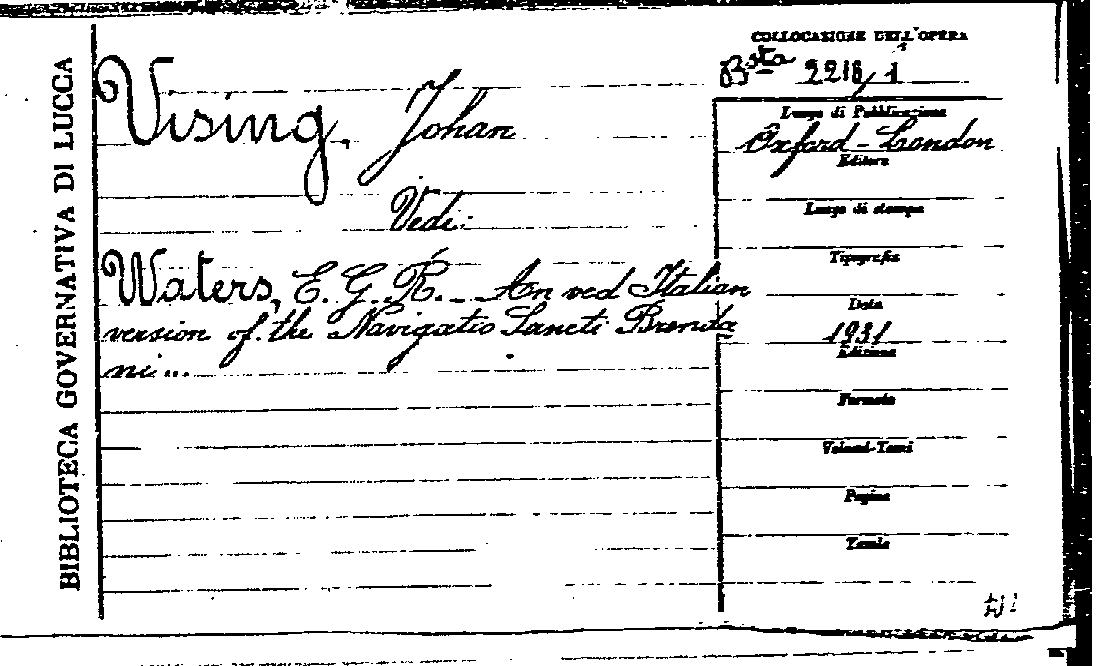 BIBLIOTECA GOVERNATIVA DI LUCCA
COLLOCAZIONE DELL'OPERA
Bsta 2218/1
Vising, Johan
Vedi:
Waters, E. G. R. - An ved Italian
version of the Navigatio Sancti Brenda
ni...
Luogo di Pubblicazione
Oxford - London
Editore
Luogo di stampa
Tipografia
Data
1931
Edizione
Formato
Volumi-Tomi
Pagine
Tavole